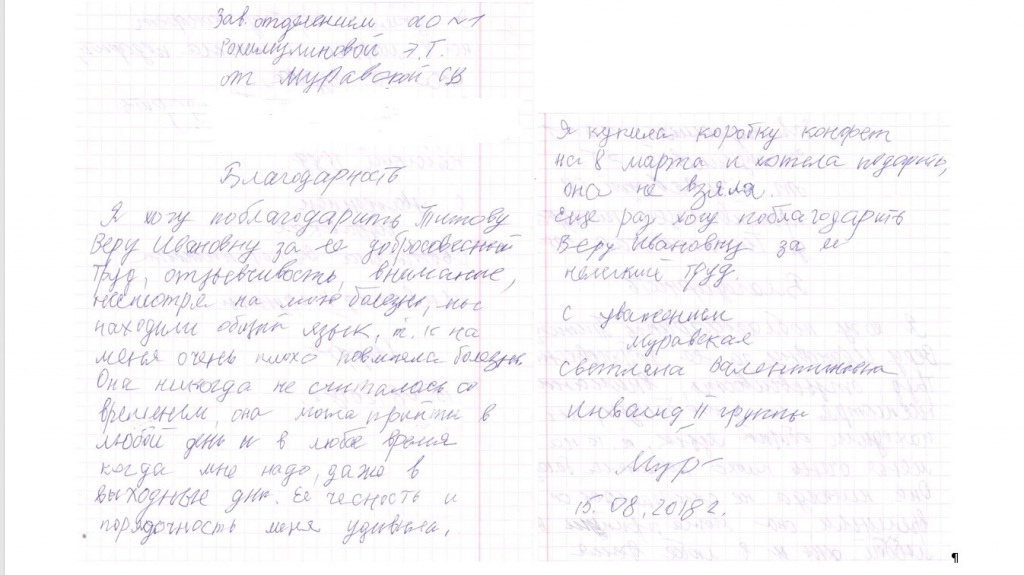 Зав. отделением ХО №1
Рохмулиновой Э.Т.
от Муравской СВ
Благодарность
Я хочу поблагодарить Титову
Веру Ивановну за ее добросовесный
труд, отзывчивость, внимание,
несмотря на мою болезнь, мы
находили общий язык, т. к на
меня очень плохо повлияла болезнь.
Она никогда не считалась со
временем, она могла прийти в
любой день и в любе время
когда мне надо, даже в
выходные дни. Ее честность и
порядочность меня удивила,
Я купила коробку конфет
на 8 марта и хотела подарить,
она не взяла.
Еще раз хочу поблагодарить
Веру Ивановну за ее
нелегкий труд.
С уважением
Муравская
Светлана Валентиновна
Инвалид II группы
Мур
15.08.2018г.
¶